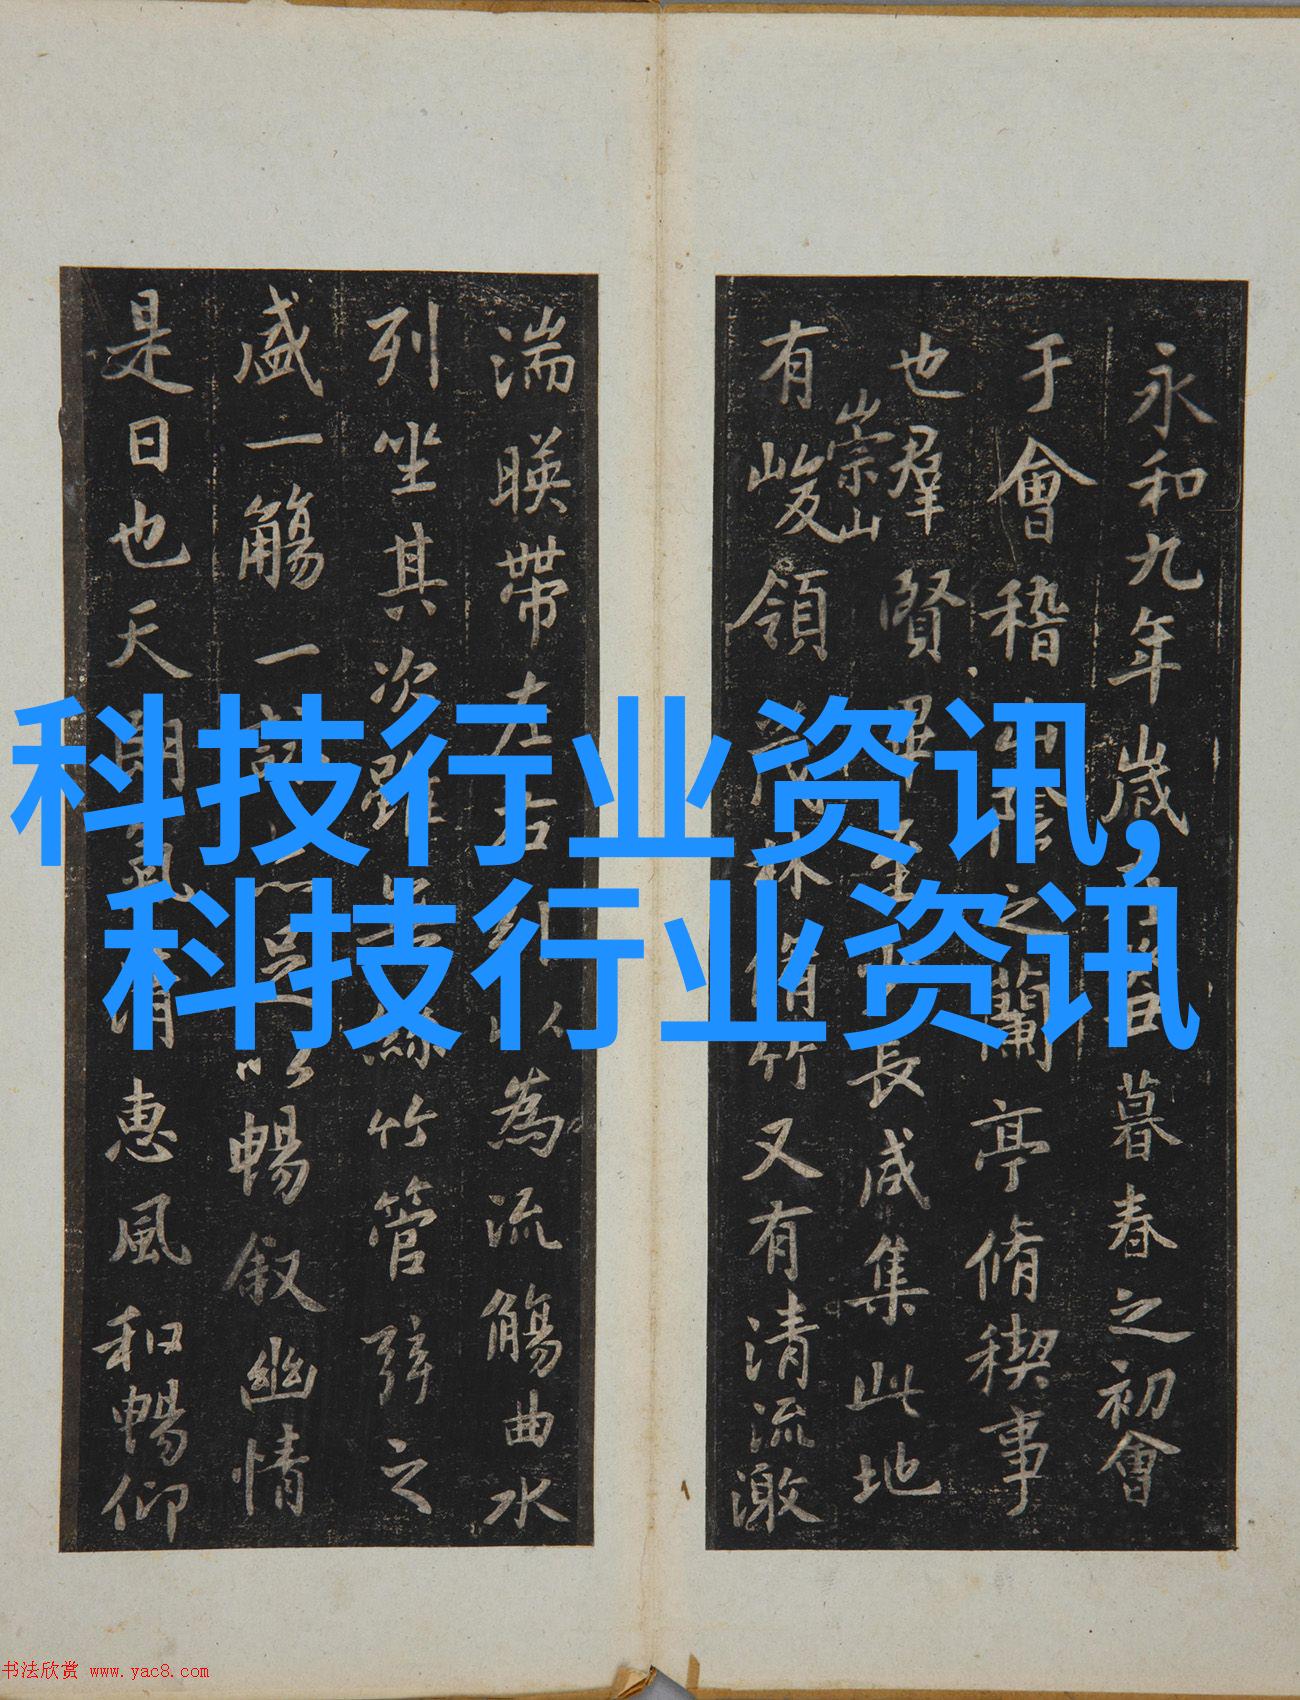 永和九年歲暮春之初會
于會稽山陰之蘭亭脩稧事
也羣賢畢至少長咸集此地
崇山
有峻領茂林脩竹又有清流激
湍暎帶左右引以為流觴曲水
列坐其次雖無絲竹管弦之
盛一觴一詠亦足以暢叙幽情
是日也天朗氣清惠風和暢仰
科技行业资讯,
科技行业资讯
书法欣赏 www.yac8.com